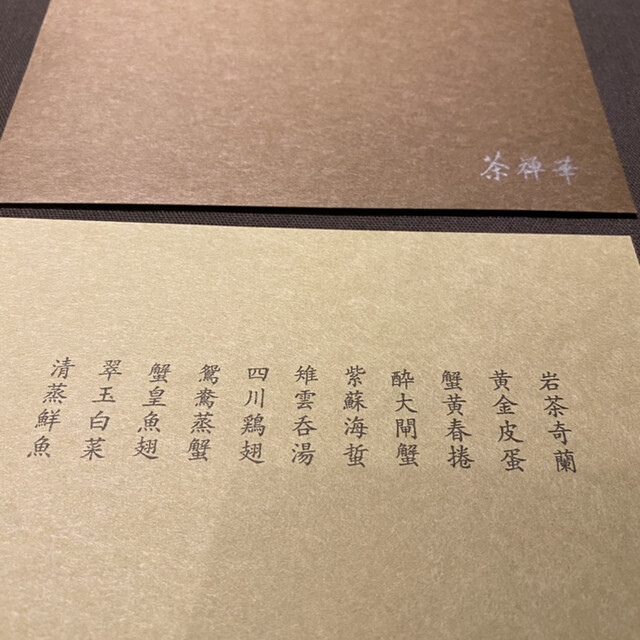 茶禅華
岩茶奇蘭
黄金皮蛋
蟹黄春捲
酔大閘蟹
紫蘇海蜇
雉雲呑湯
四川鶏翅
鴛鴦蒸蟹
蟹皇魚翅
翠玉白菜
清蒸鮮魚